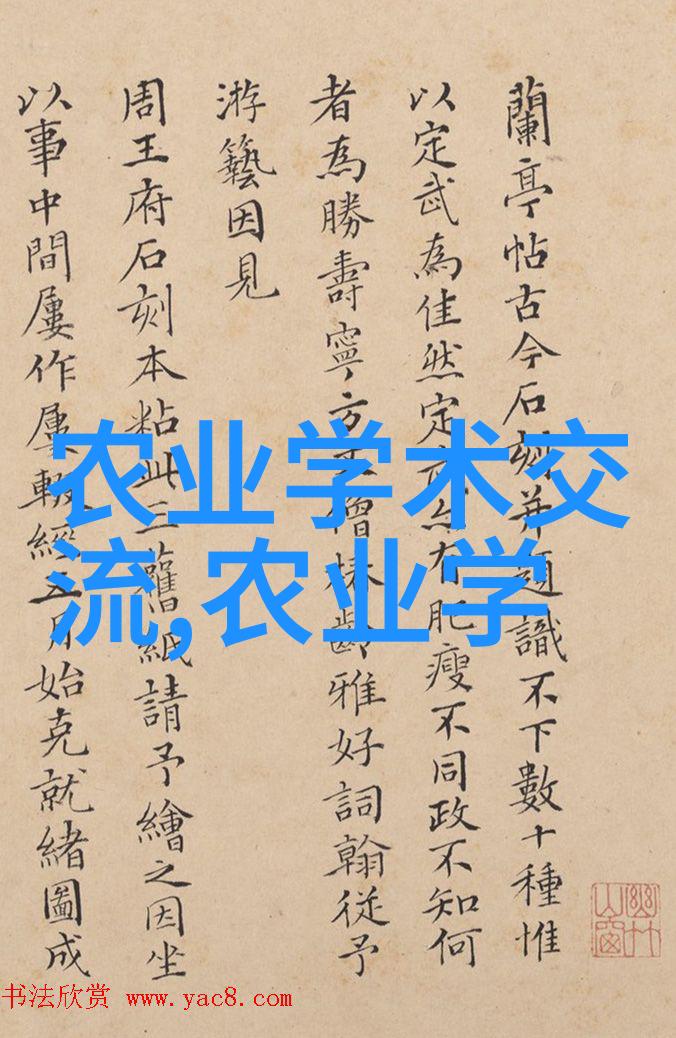 蘭亭帖古今石刻并題識不下數十種惟
以定武為佳然定武亦有肥瘦不同政不知何
者為勝壽寧方丈僧椿齡雅好詞翰從予
游藝因見
周王府石刻本粘此三舊紙請予繪之因坐
以事中間屢作屢輟經五月始克就緒圖成
农业学术交
流,农业学
书法欣赏 www.yac8.com